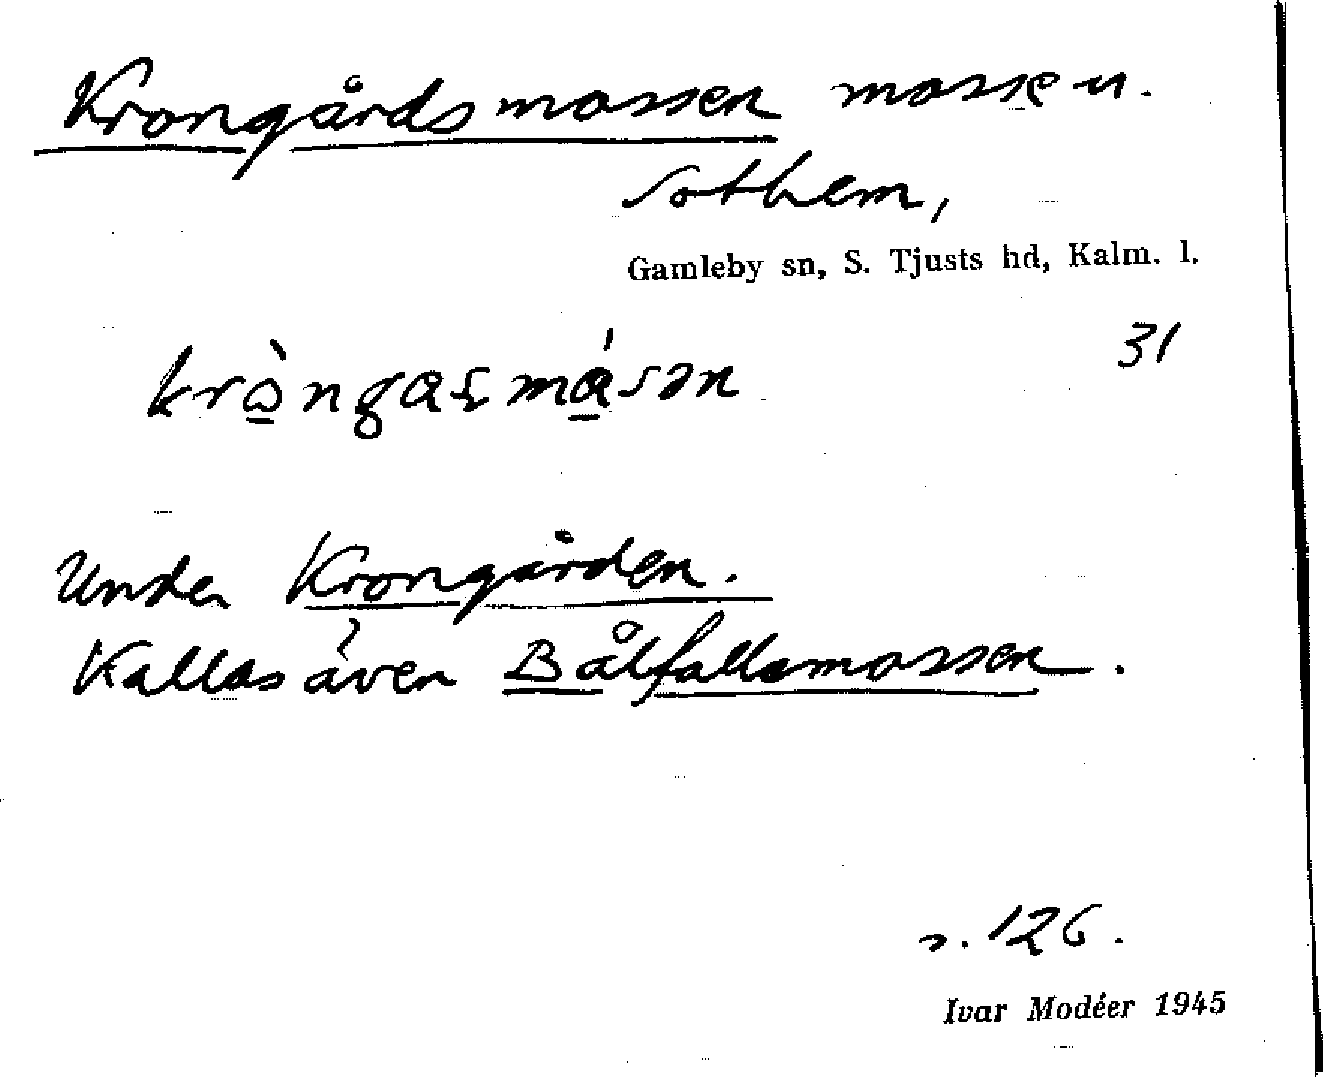 Krongårdsmossen mosse u.
Sothem,
Gamleby sn, S. Tjusts hd, Kalm. l.
31
Under Krongården.
Kallas även Bålfallsmossen.
s. 126.
Ivar Modéer 1945